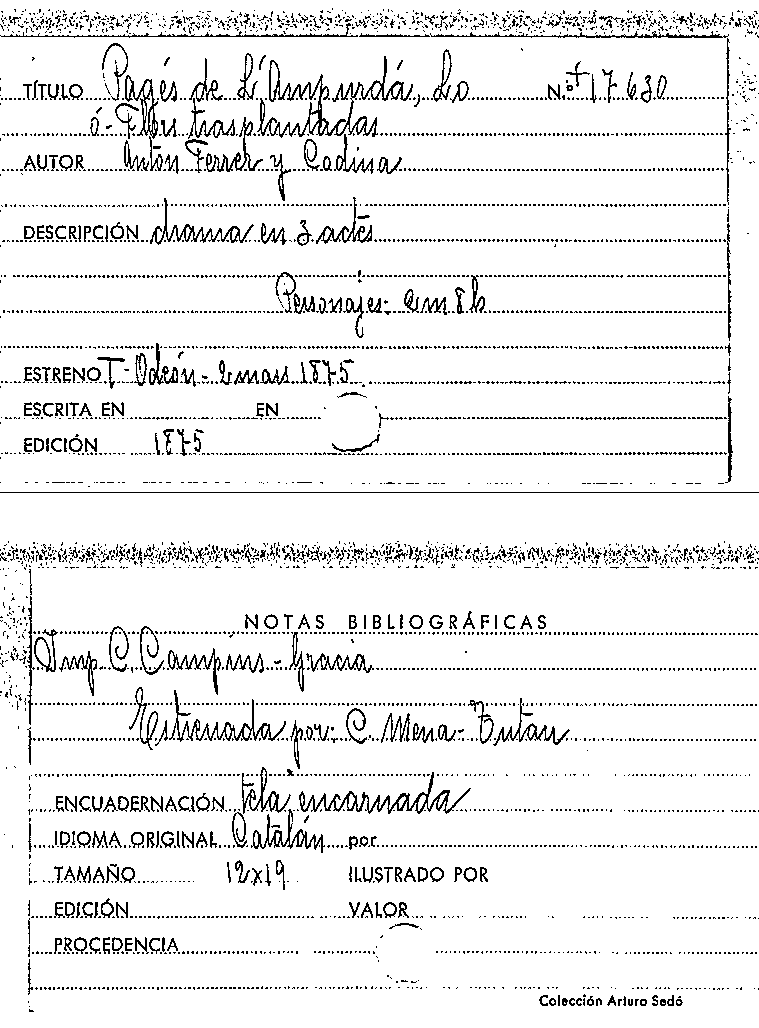 TÍTULO Pagés de L'Ampurdá, Lo N.º † 17-630
ó - Flors trasplantadas
AUTOR Antón Ferrer y Codina
DESCRIPCIÓN drama en 3 actes
Personajes: 2 m 8 h
ESTRENO T- Odeón - 2 mars 1875
ESCRITA EN EN
EDICIÓN 1875
NOTAS BIBLIOGRÁFICAS
Imp C. Campins - Gracia
Estrenada por: C. Mena - Tutau
ENCUADERNACIÓN tela encarnada
IDIOMA ORIGINAL Catalán por
TAMAÑO 12x19 ILUSTRADO POR
EDICIÓN VALOR
PROCEDENCIA
Colección Arturo Sedó